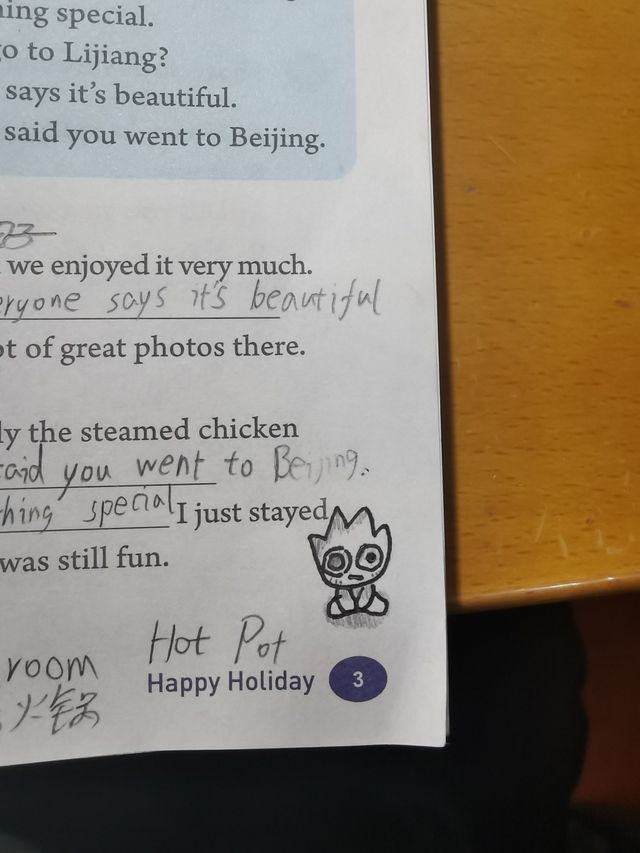 ing special.
o to Lijiang?
says it's beautiful.
said you went to Beijing.
we enjoyed it very much.
eryone says it's beautiful
ot of great photos there.
ly the steamed chicken
said you went to Beijing.
hing special I just stayed
was still fun.
room Hot Pot
Happy Holiday 3
火锅